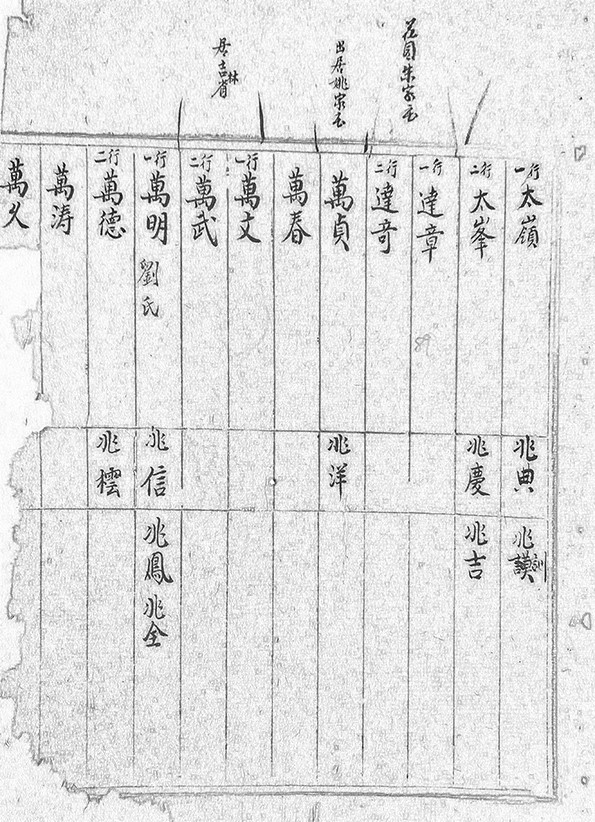 花園朱家屯
出居姚家屯
居吉林省
一行 太嶺 兆典 兆謨 訓
二行 太峯 兆慶 兆吉
一行 達章
二行 達奇
萬貞 兆洋
萬春
一行 萬文
二行 萬武
一行 萬明 劉氏 兆信 兆鳳 兆全
二行 萬德 兆櫄
萬涛
萬久